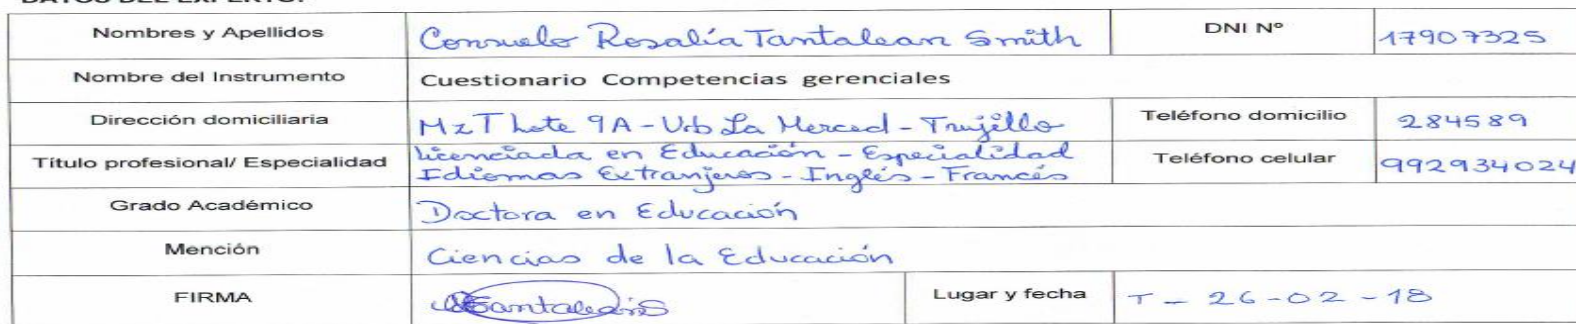 DATOS DEL EXPERTO:
Nombres y Apellidos Consuelo Rosalía Tantalean Smith DNI Nº 17907325
Nombre del Instrumento Cuestionario Competencias gerenciales
Dirección domiciliaria Mz T Lote 9A - Urb La Merced - Trujillo Teléfono domicilio 284589
Título profesional/ Especialidad Licenciada en Educación - Especialidad
Idiomas Extranjeros - Inglés - Francés Teléfono celular 992934024
Grado Académico Doctora en Educación
Mención Ciencias de la Educación
FIRMA Lugar y fecha T - 26-02-18